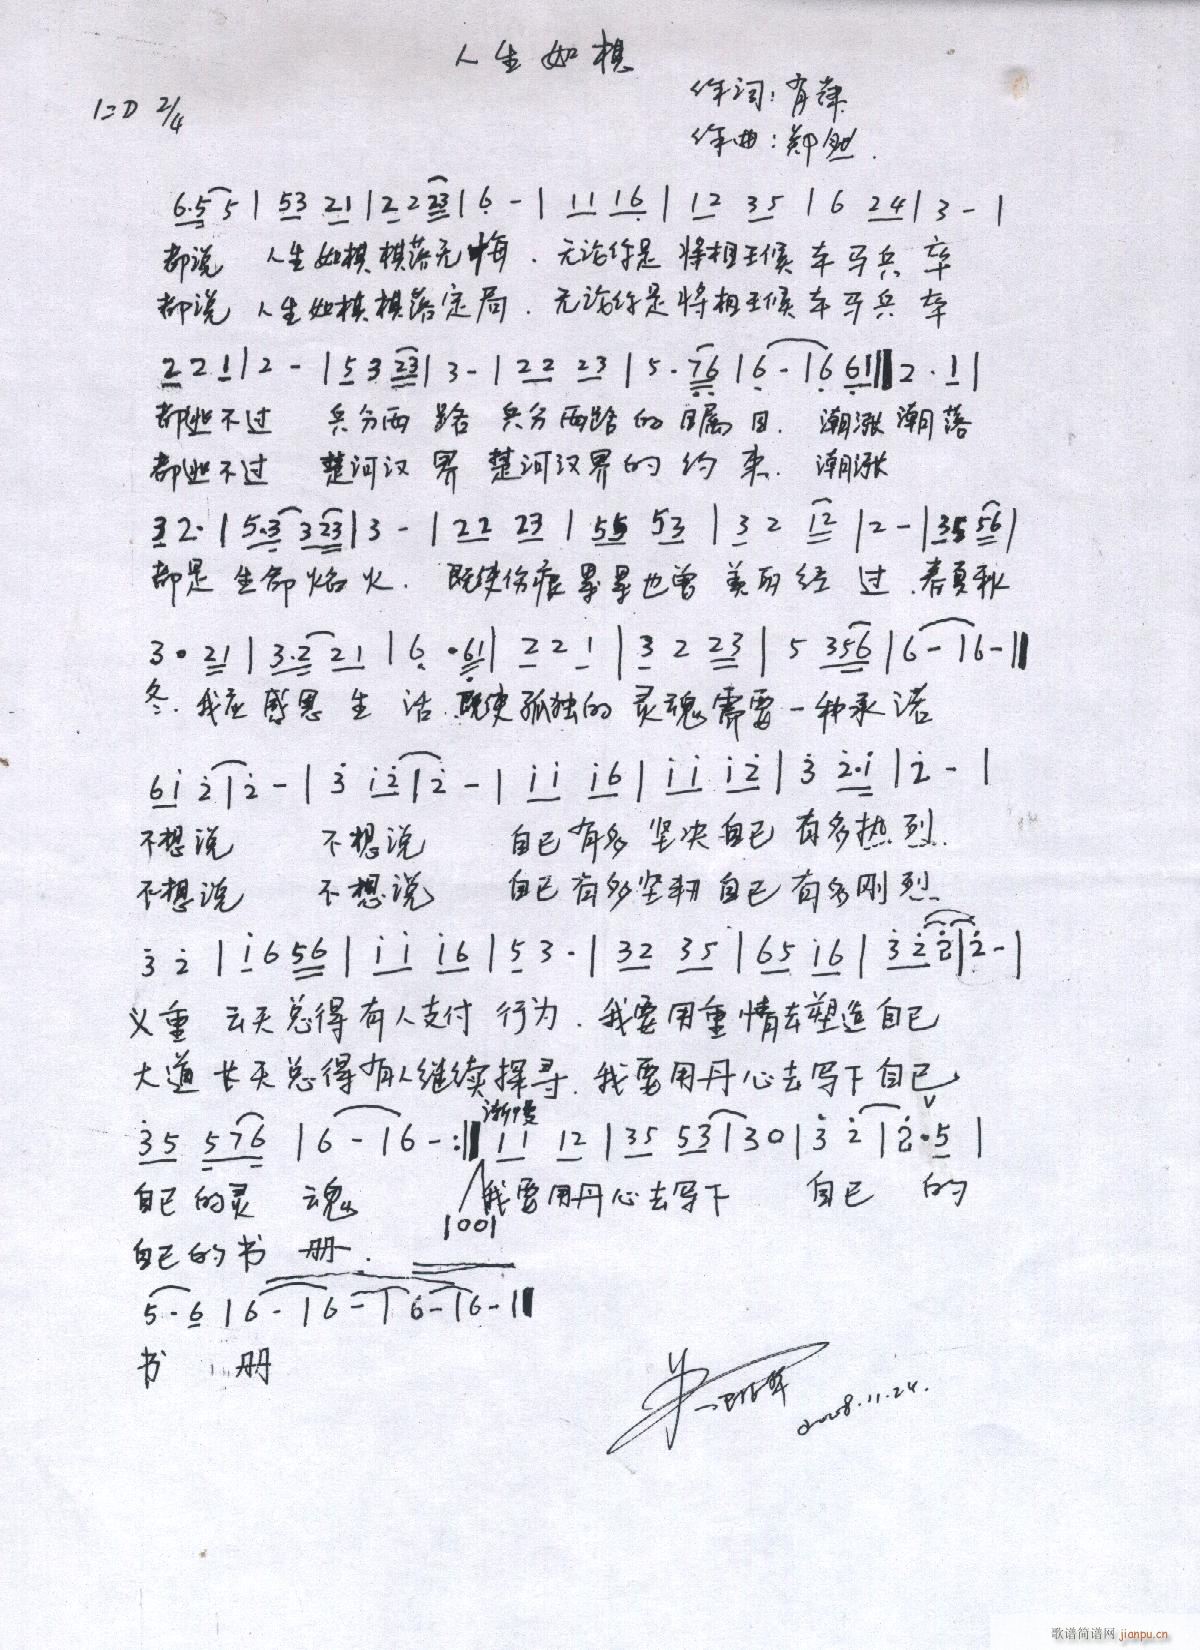 人生如棋
作词:肖
1=D 2/4
作曲:郑
6.5 5 | 53 21 | 2 2 23 | 6 - | 11 16 | 12 35 | 6 24 | 3 - |
都说 人生如棋棋落无悔. 无论你是将相王候车马兵卒
都说 人生如棋棋落定局. 无论你是将相王候车马兵卒
2 2 1 | 2 - | 5 3 23 | 3 - | 22 23 | 5. 76 | 6 - | 6 61 ‖ 2. 1 |
都逃不过 兵分两路 兵分两路的瞩目. 潮涨潮落
都逃不过 楚河汉界 楚河汉界的约束. 潮涨
3 2. | 5.3 3 23 | 3 - | 22 23 | 55 53 | 3 2 12 | 2 - | 35 56 |
都是生命焰火. 既使伤痕累累也曾美丽经过.春夏秋
3. 21 | 3.2 21 | 6. 61 | 2 2 1 | 3 2 23 | 5 356 | 6 - | 6 - ‖
冬.我应感恩生活.既使孤独的灵魂需要一种承诺
6i 2̇ | 2̇ - | 3̇ i2̇ | 2̇ - | ii i6 | ii i2̇ | 3̇ 2̇.i | 2̇ - |
不想说 不想说 自己有多坚决自己有多热烈.
不想说 不想说 自己有多坚韧自己有多刚烈.
3̇ 2̇ | i 6 56 | ii i6 | 5 3. | 32 35 | 65 i6 | 3̇ 2̇ 2̇ | 2̇ - |
义重云天总得有人支付行为.我要用重情去塑造自己
大道长天总得有人继续探寻.我要用丹心去写下自己
渐慢 V
3̇5 5 76 | 6 - | 6 - :‖ 11 12 | 35 53 | 30 | 3̇ 2̇ | 2̇. 5 |
自己的灵魂 我要用丹心去写下 自己的
|001
自己的书册.
5. 6 | 6 - | 6 - | 6 - | 6 - ‖
书册
2008.11.24.
歌谱简谱网 jianpu.cn